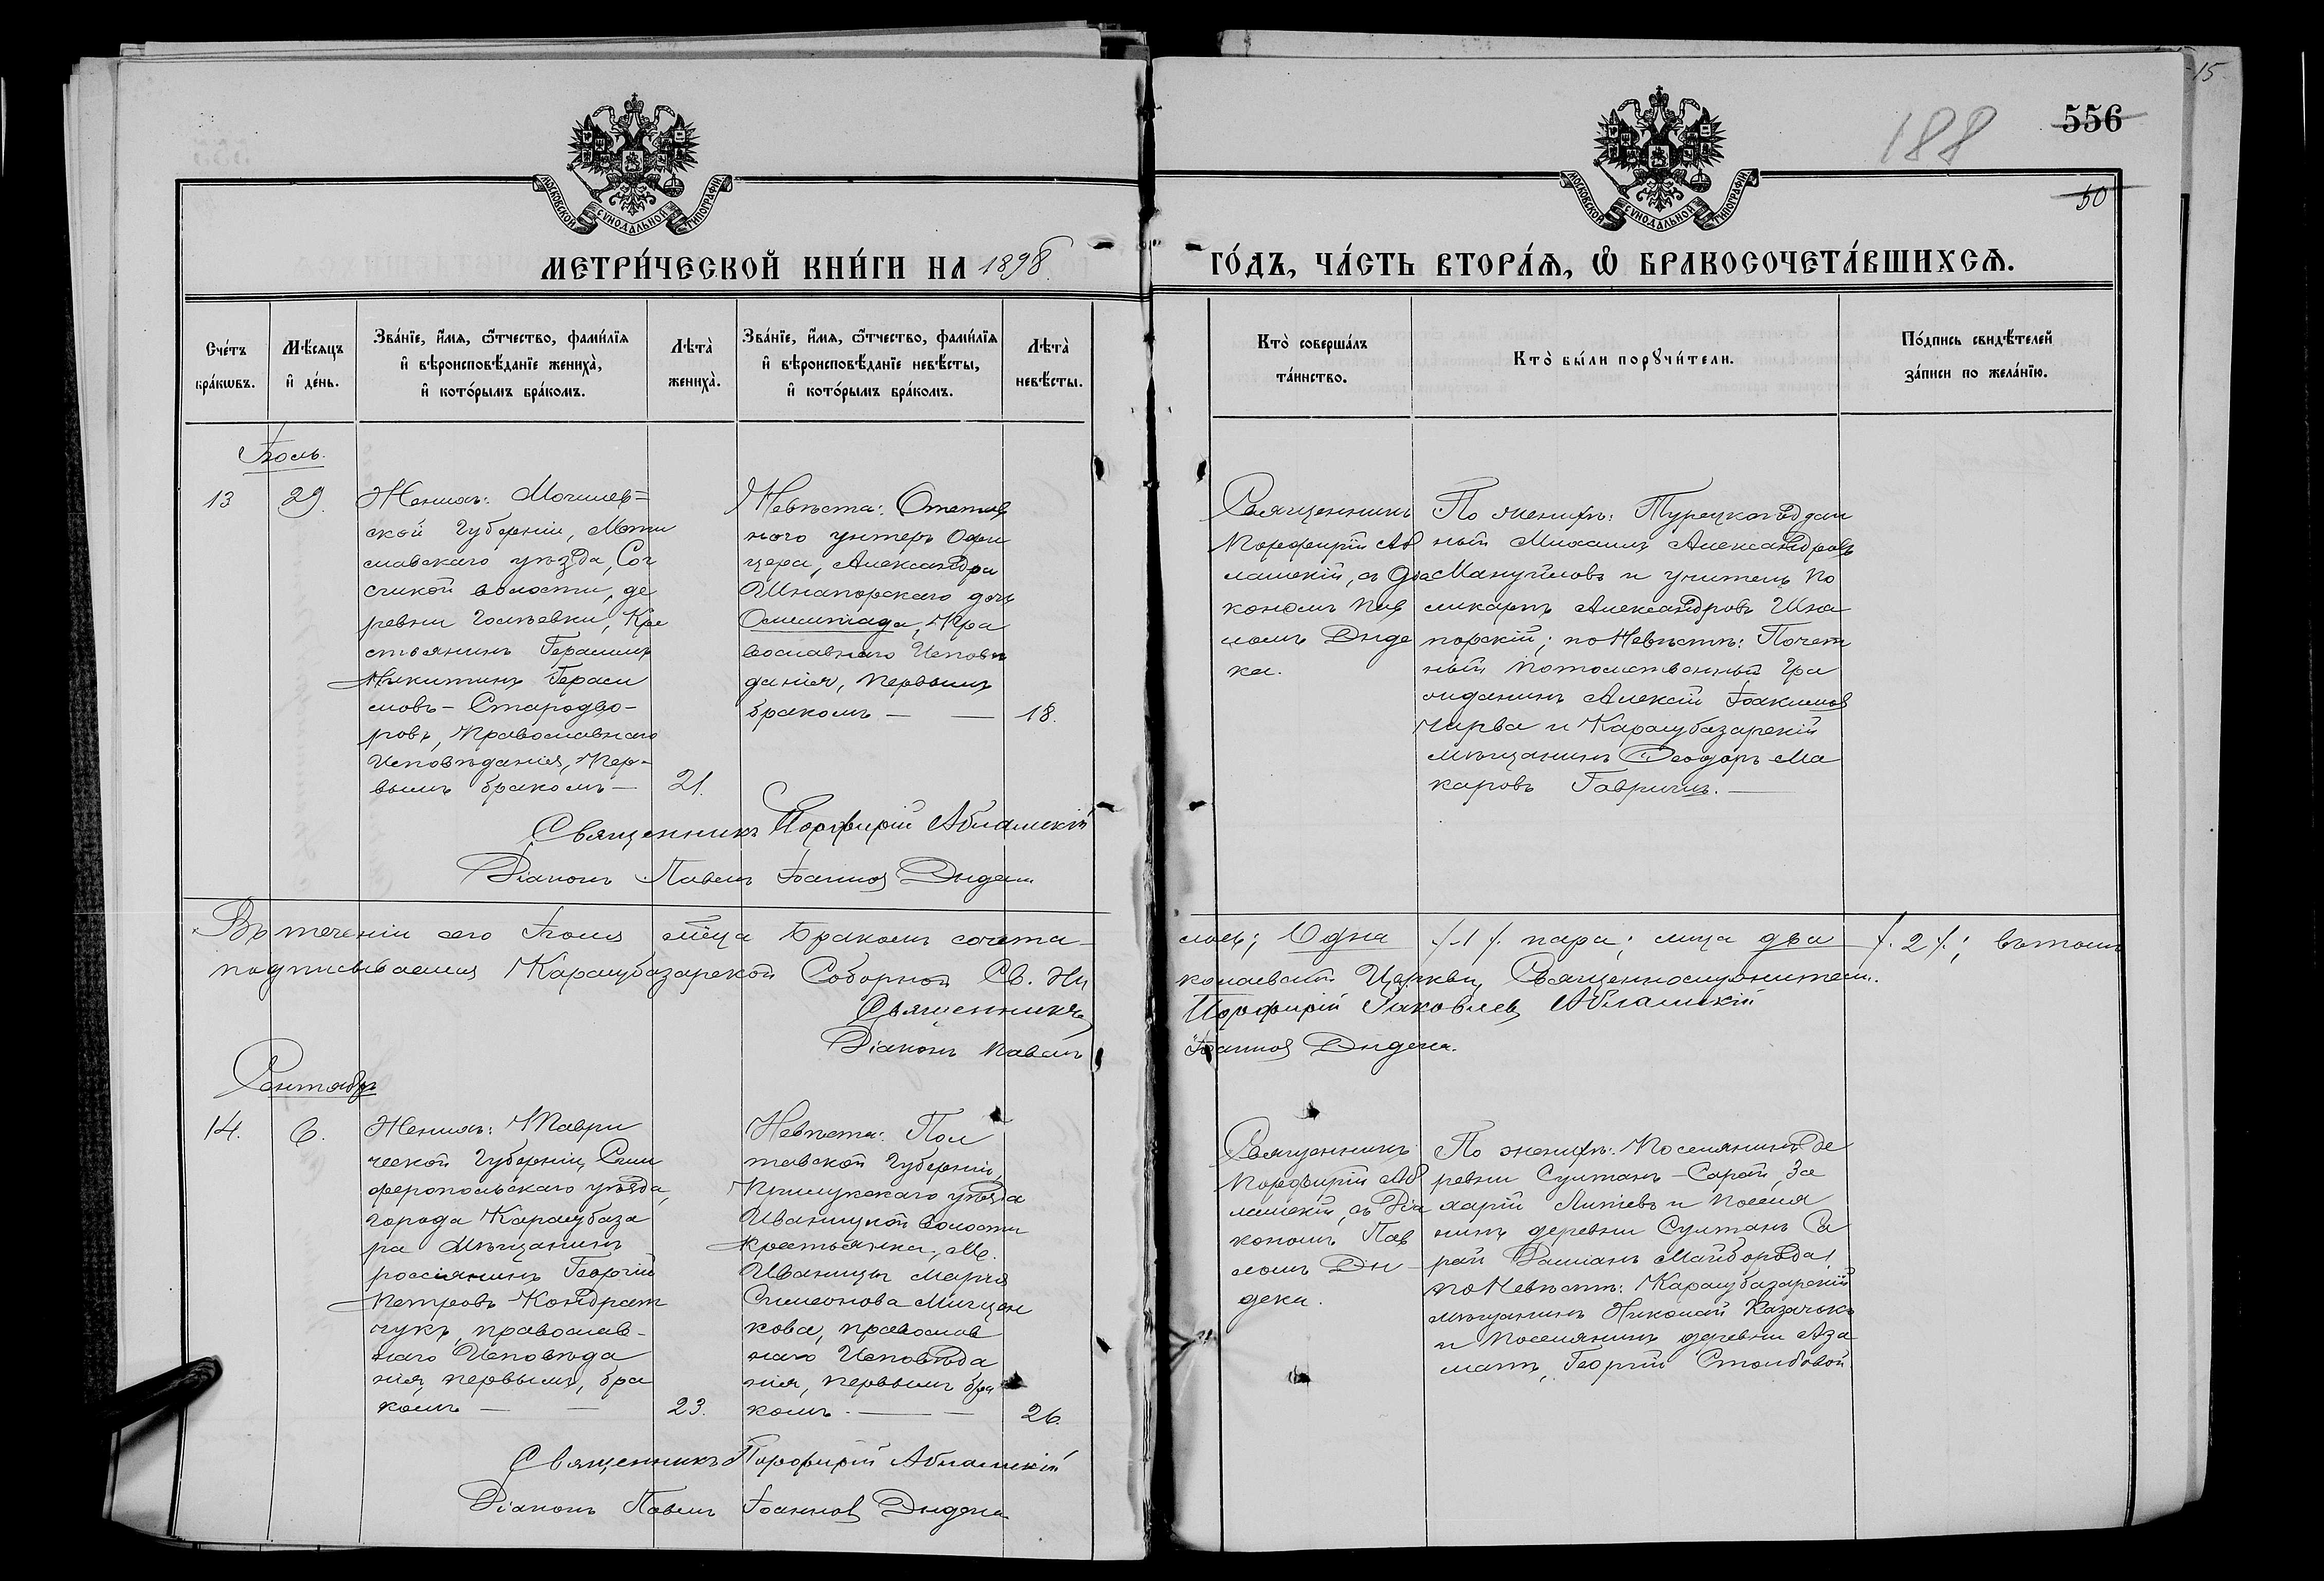 15
188
556
50
МОСКОВСКОЙ СУНОДАЛЬНОЙ ТИПОГРАФІИ
МОСКОВСКОЙ СУНОДАЛЬНОЙ ТИПОГРАФІИ
МЕТРИ́ЧЕСКОЙ КНИ́ГИ НА 1898.
ГО́ДЪ, ЧА́СТЬ ВТОРА́Ѧ, Ѽ БРАКОСОЧЕТА́ВШИХСѦ.
Сче́тъ
бра́кѡвъ.
Мѣ́сяцъ
и҆ де́нь.
Зва́нїе, и҆́мя, ѿтчество, фами́лїя
и҆ вѣроисповѣ́данїе жениха̀,
и҆ кото́рымъ бра́комъ.
Лѣта̀
жениха̀.
Зва́нїе, и҆́мя, ѿтчество, фами́лїя
и҆ вѣроисповѣ́данїе невѣ́сты,
и҆ кото́рымъ бра́комъ.
Лѣта̀
невѣ́сты.
Кто̀ соверша́лъ
та́инство.
Кто̀ бы́ли порꙋчи́тели.
По́дпись свидѣ́телей
за́писи по жела́нїю.
Іюль.
13
29.
Женихъ: Могилев=
ской Губерніи, Мсти
славскаго уѣзда,
волости, де
ревни Голѣевки, Кре
стьянинъ Герасимъ
Никитинъ Гераси
мовъ - Стародво-
ровъ, Православнаго
Исповѣданія, Пер-
вымъ бракомъ —
21.
Невѣста: Отстав
ного унтеръ Офи
цера, Александра
Шнапорскаго дочь
Олимпіада, Пра
вославнаго Исповѣ
данія, Первымъ
бракомъ — —
18.
Священникъ
Порфирій Аб
лашскій, съ Діа
кономъ Пав
ломъ Диде
ка.
По женихѣ: Турецкоподдан
ный Михаилъ Александровъ
Мануйловъ и учитель По
ликарпъ Александровъ Шна
порскій; по Невѣстѣ: Почет
ный Потомственный Гра
жданинъ Алексій Іоакимов
Чирва и Карасубазарскій
мѣщанинъ Ѳеодоръ Ма
каровъ Гавришъ. —
Священникъ Порфирій Аблашскій
Діаконъ Павелъ Іоаннов Дидека
Въ теченіи сего Іюля м̃ца Бракомъ сочета-
лось; Одна /.1/. пара; лица два /. 2 /.; вътомъ
подписываемся Карасубазарской Соборной Св. Ни
колаевской Церкви, Священнослужители.
Священникъ
Порфирій Іаковлев Аблашскій
Діаконъ Павелъ
Іоаннов Дидека.
Сентябрь
14.
6.
Женихъ: Таври
ческой Губерніи, Сим
феропольскаго уѣзда,
города Карасубаза
ра Мѣщанинъ
россіянинъ Георгій
Петровъ Кондрат
чукъ, православ-
наго Исповѣда
нія, первымъ, бра
комъ — —
23.
Невѣста: Пол
тавской Губерніи,
Прилукскаго уѣзда
Иваницкой волости
крестьянка, м.
Иваницы Марія
Симеонова Мищен
кова, православ
наго Исповѣда
нія, первымъ бра
комъ. — —
26.
Священникъ
Порфирій Аб
лашскій, съ Діа
кономъ Пав
ломъ Ди-
дека.
По женихѣ: Поселянинъ де
ревни Султанъ-Сарай, За
харій и Поселя
нинъ деревни Султанъ Са
рай Даміанъ Майборода;
по Невѣстѣ: Карасубазарскій
мѣщанинъ Николай Казачокъ
и Поселянинъ деревни Аза
матъ, Георгій Столбовой.
Священникъ Порфирій Аблашскій
Діаконъ Павелъ Іоаннов Дидека